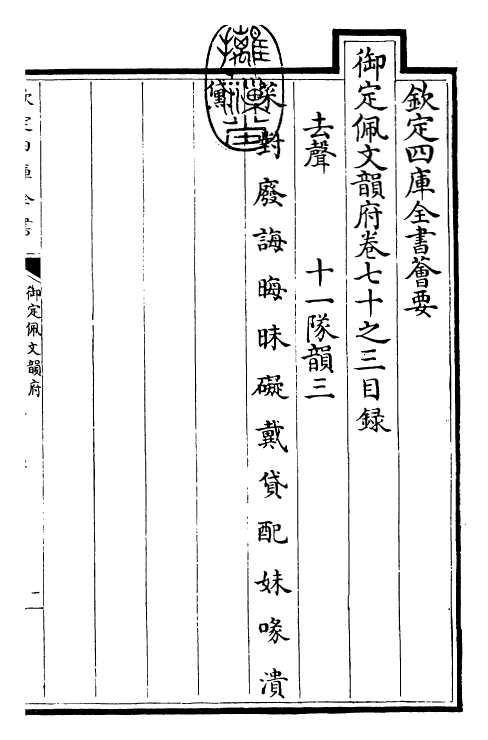 欽定四庫全書薈要
御定佩文韻府卷七十之三目録
去聲　十一隊韻三
采對廢誨晦昧礙戴貸配妹喙潰
御定佩文韻府